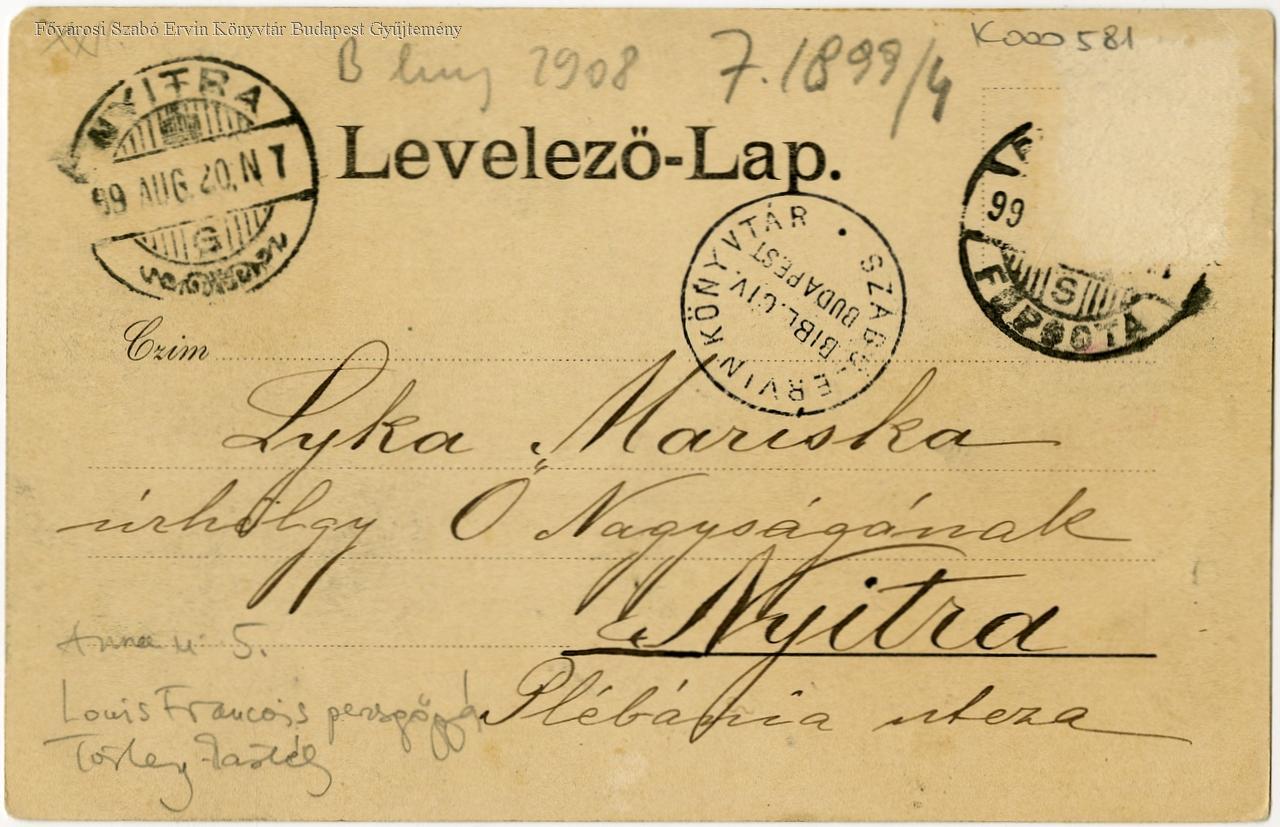 Fővárosi Szabó Ervin Könyvtár Budapest Gyűjtemény
K000581
B 2908 7.1899/4
NYITRA
99 AUG. 20. N 7
S
Levelező-Lap.
SZABÓ ERVIN KÖNYVTÁR
BIBL. CIV.
BUDAPEST
99
S
Czim
Lyka Mariska
úrhölgy Ő Nagyságának
Nyitra
Plébánia utcza
Anna u 5.
Louis Francois pezsgőgyár
Törley kastély